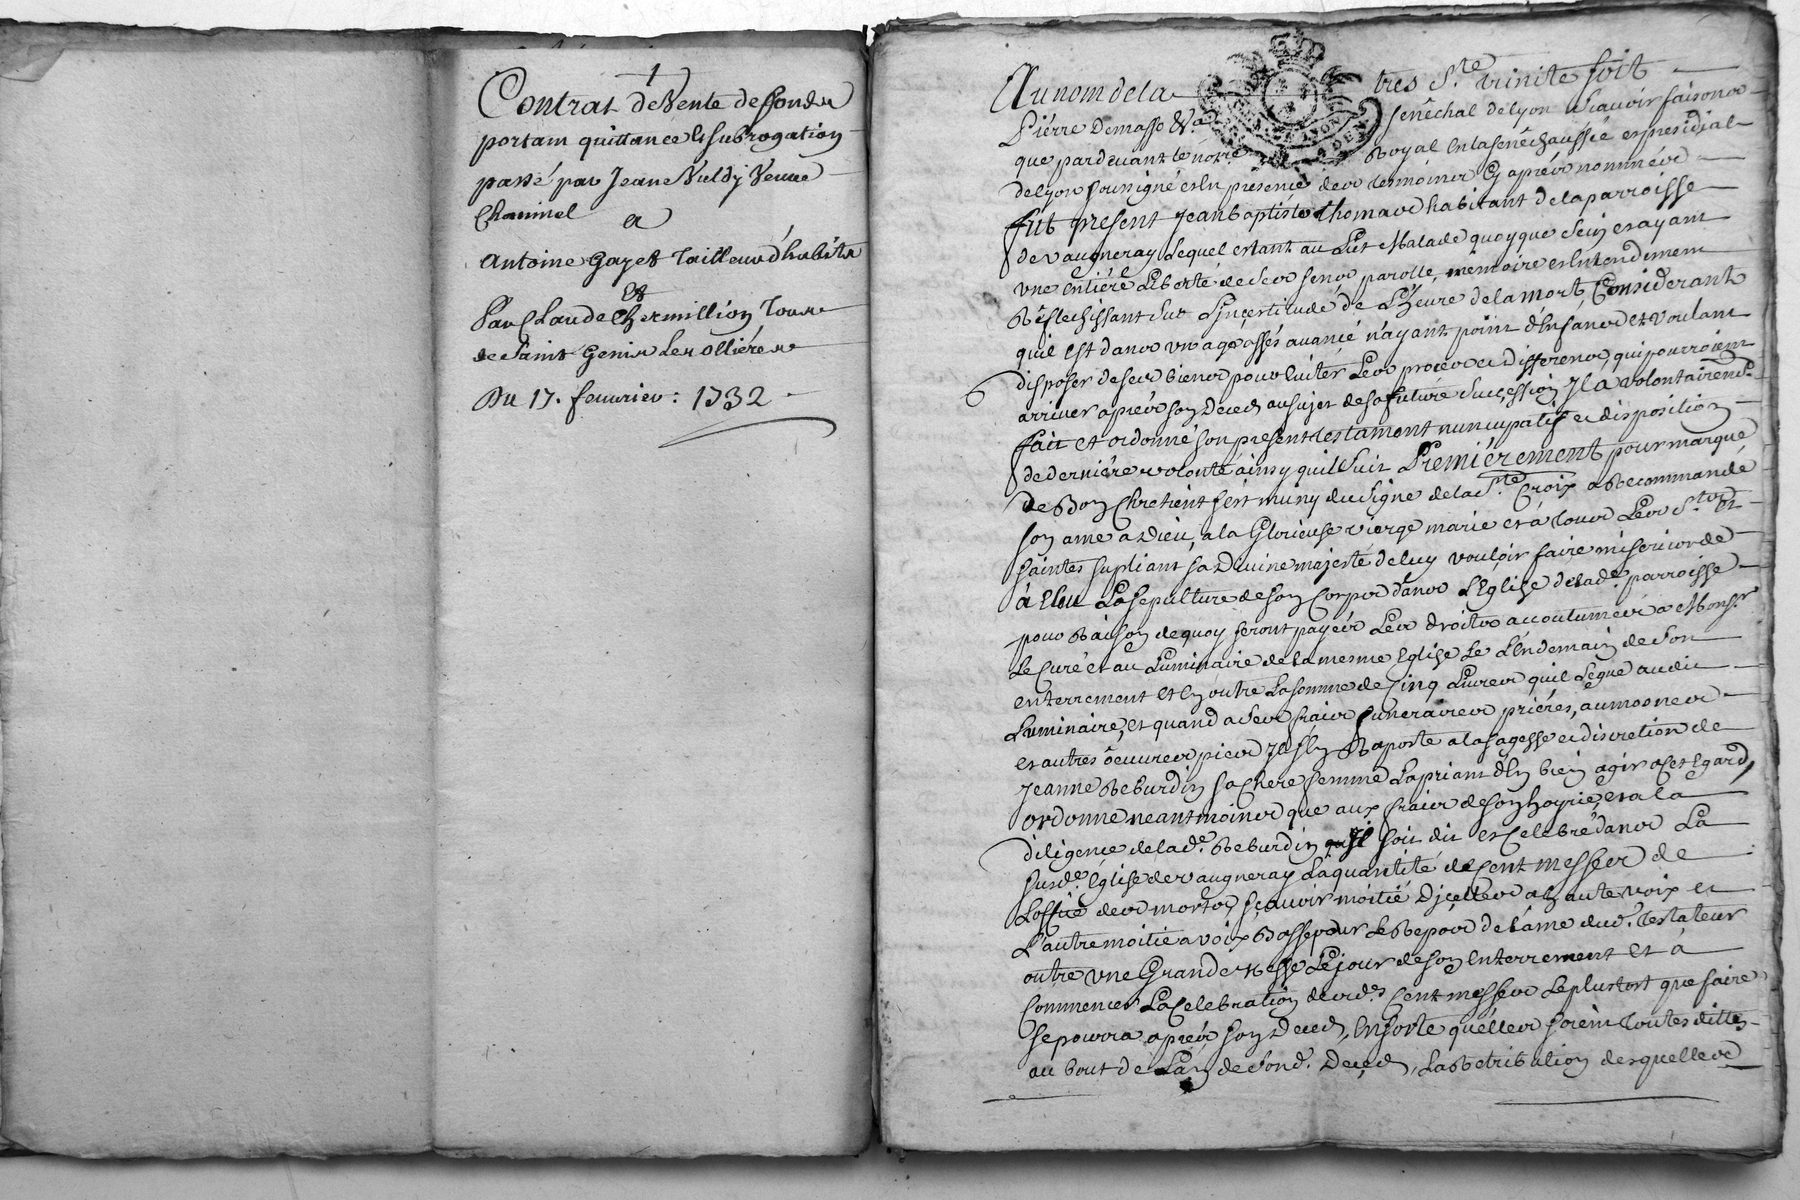 1
Contrat de Vente de fonds
portant quittance et subrogation
passé par Jeane Vuldy Veuve
Chaminel
a
Antoine Gayet Tailleur d'habits
et
Par Claude Chermillion Tous
de Saint Genis Les Ollières
Du 17. feuurier : 1732
Au nom de la tres Ste. trinité soit
Pierre Demasso &ca senêchal de Lyon scavoir faisons
que pardevant le notre. Royal en la senêchaussée et presidial
de Lyon soussigné et en presence des tesmoins cy aprés nommés
fut present Jean Baptiste Thomas habitant de la parroisse
de vaugneray Lequel estant au Lit Malade quoyque sein et ayant
une entiére Liberté de ses sens parolle, mémoire et entendement
Réflechissant sur L'incertitude de L'heure de la mort, Considerant
quil est dans un age assés avancé n'ayant point d'Enfans et voulant
disposer de ses biens pour éviter Les procès et differens, qui pourroient
arriver aprés son Decedz au sujet de sa future succession Il a volontairemt.
fait et ordonné son present testament nuncupatif et disposition
de derniére volonté ainsy quil suit Premiérement pour marque
de Bon Chretient s'est muny du signe de la Ste. Croix a Recommandé
son ame a Dieu, a la Glorieuse vierge marie et à tous Les Sts. et
saintes supliant sa Divine majesté de luy vouloir faire misericorde
à Eleu La sepulture de son Corps dans L'Eglise de lade. parroisse
pour Raison de quoy seront payés Les droits accoutumés a Monsr.
Le Curé et au Luminaire de la mesme Eglise Le L'Endemain de son
enterrement et En outre La somme de Cinq Livres quil Legue audit
Luminaire, et quand a ses fraix funeraires priéres, aumosnes
et autres oeuvres pies Il s'En Raporte a la sagesse et discretion de
Jeanne Reburdin sa Chere femme La priant d'En bien agir a cet Egard,
ordonne neantmoins que aux fraix de son hoyrie, et a la
diligence de lade. Reburdin quil soit dit et Celebré dans La
susde. église de vaugneray La quantité de Cent messes de
L'office des morts, sçavoir moitié D'icelles a haute voix et
L'autre moitié a voix Basse pour Le Repos de L'ame dud. testateur
outre une Grande Messe Le jour de son Enterrement et à
Commencer La Celebration desds. Cent messes Le plustost que faire
se pourra aprés son Decedz, Ensorte qu'elles soient toutes dittes
au bout de L'an de sond. Decedz, La Retribution desquelles